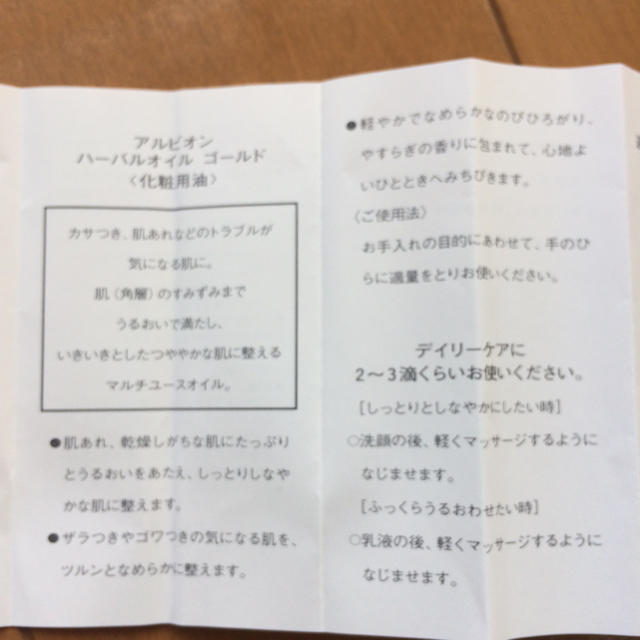 アルビオン
ハーバルオイル ゴールド
〈化粧用油〉
カサつき、肌あれなどのトラブルが
気になる肌に。
肌(角層)のすみずみまで
うるおいで満たし、
いきいきとしたつややかな肌に整える
マルチユースオイル。
●肌あれ、乾燥しがちな肌にたっぷり
とうるおいをあたえ、しっとりしなや
かな肌に整えます。
●ザラつきやゴワつきの気になる肌を、
ツルンとなめらかに整えます。
●軽やかでなめらかなのびひろがり、
やすらぎの香りに包まれて、心地よ
いひとときへみちびきます。
〈ご使用法〉
お手入れの目的にあわせて、手のひ
らに適量をとりお使いください。
デイリーケアに
2〜3滴くらいお使いください。
[しっとりとしなやかにしたい時]
○洗顔の後、軽くマッサージするように
なじませます。
[ふっくらうるおわせたい時]
○乳液の後、軽くマッサージするように
なじませます。